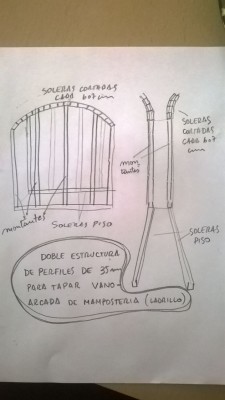 SOLERAS CORTADAS
CADA 6o7 cm
SOLERAS
CORTADAS
CADA 6o7
cm
mon
tantes
montantes
SOLERAS PISO
SOLERAS
PISO
DOBLE ESTRUCTURA
DE PERFILES DE 35mm
PARA TAPAR VANO-
ARCADA DE MAMPOSTERIA (LADRILLO)